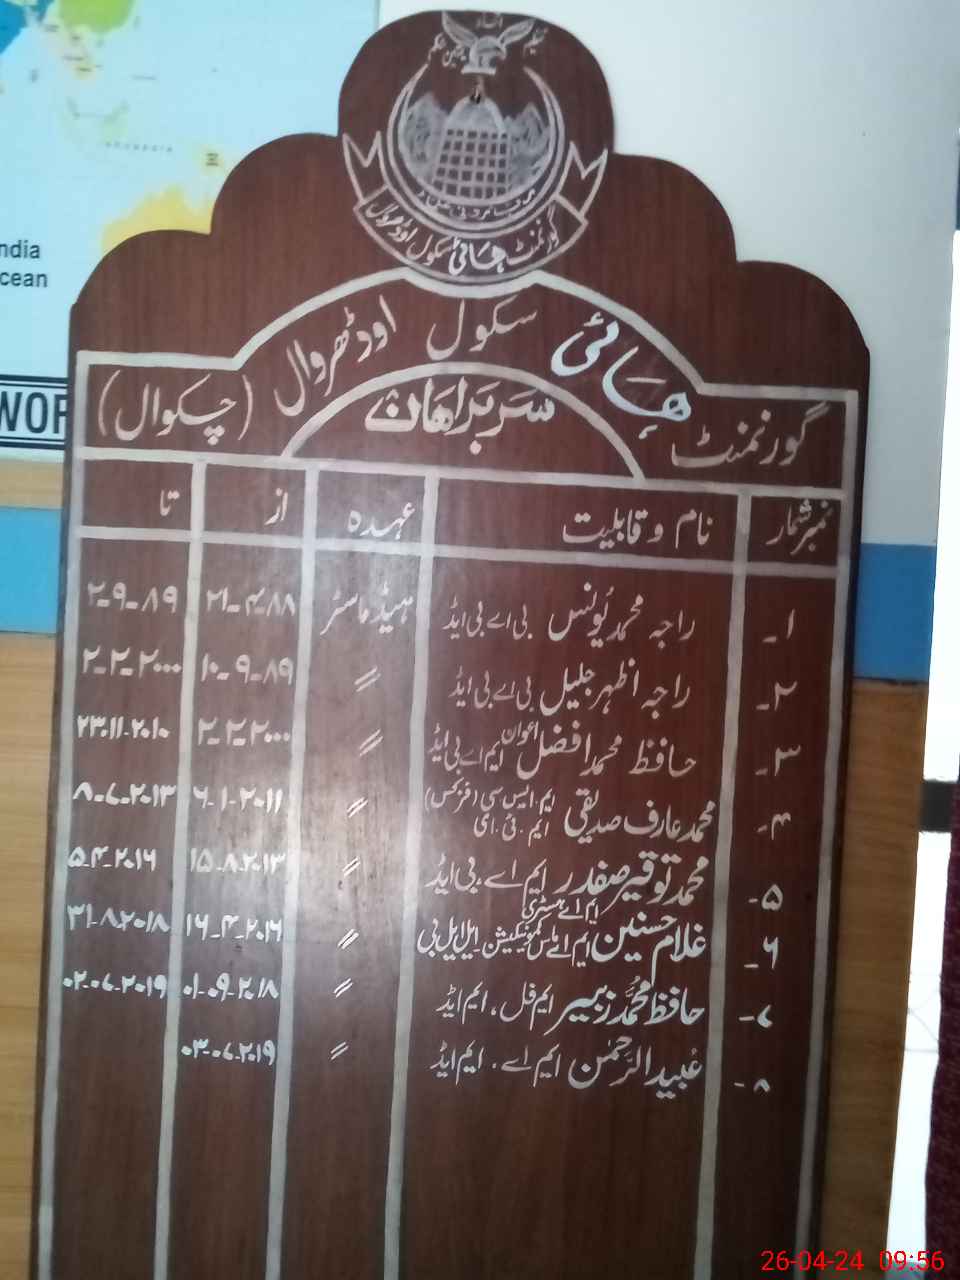 اتحاد
تنظیم
یقین محکم
گورنمنٹ ہائی سکول اوڈھروال
گورنمنٹ ہائی سکول اوڈھروال (چکوال)
سربراہان
نمبر شمار نام و قابلیت عہدہ از تا
۱- راجہ محمد یُونس بی اے بی ایڈ ہیڈ ماسٹر ۲۱-۴-۸۸ ۲-۹-۸۹
۲- راجہ اظہر جلیل بی اے بی ایڈ 〃 ۱۰-۹-۸۹ ۲-۲-۲۰۰۰
۳- حافظ محمد افضل اعوان ایم اے بی ایڈ 〃 ۲-۲-۲۰۰۰ ۲۳-۱۱-۲۰۱۰
۴- محمد عارف صدیقی ایم.ایس سی (فزکس) ایم.ئی.ای 〃 ۶-۱-۲۰۱۱ ۸-۷-۲۰۱۳
۵- محمد توقیر صفدر ایم اے، بی ایڈ 〃 ۱۵-۸-۲۰۱۳ ۵-۴-۲۰۱۶
۶- غلام حسنین ایم اے ہسٹری ایم اے ماس کمونیکیشن-ایل ایل بی 〃 ۱۶-۴-۲۰۱۶ ۳۱-۸-۲۰۱۸
۷- حافظ محمّد زبیر ایم فل، ایم ایڈ 〃 ۰۱-۰۹-۲۰۱۸ ۰۲-۰۷-۲۰۱۹
۸- عُبید الرّحمٰن ایم اے. ایم ایڈ 〃 ۰۳-۰۷-۲۰۱۹
ndia
cean
WOR
26-04-24 09:56